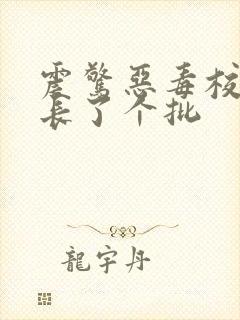 震驚惡毒校
長了个批
龍宇丹